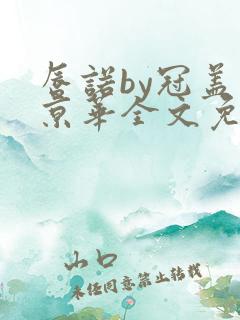 唇諾by冠盖
京華全文免
山口
未经同意禁止转载